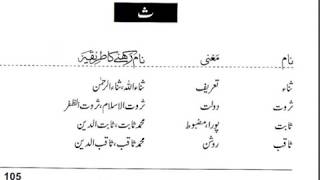 ث
نام معنی نام رکھنے کا طریقہ
ثناء تعریف ثناء اللہ، ثناء الرحمٰن
ثروت دولت ثروت الاسلام، ثروت الظفر
ثابت پورا، مضبوط محمد ثابت، ثابت الدین
ثاقب روشن محمد ثاقب، ثاقب الدین
105